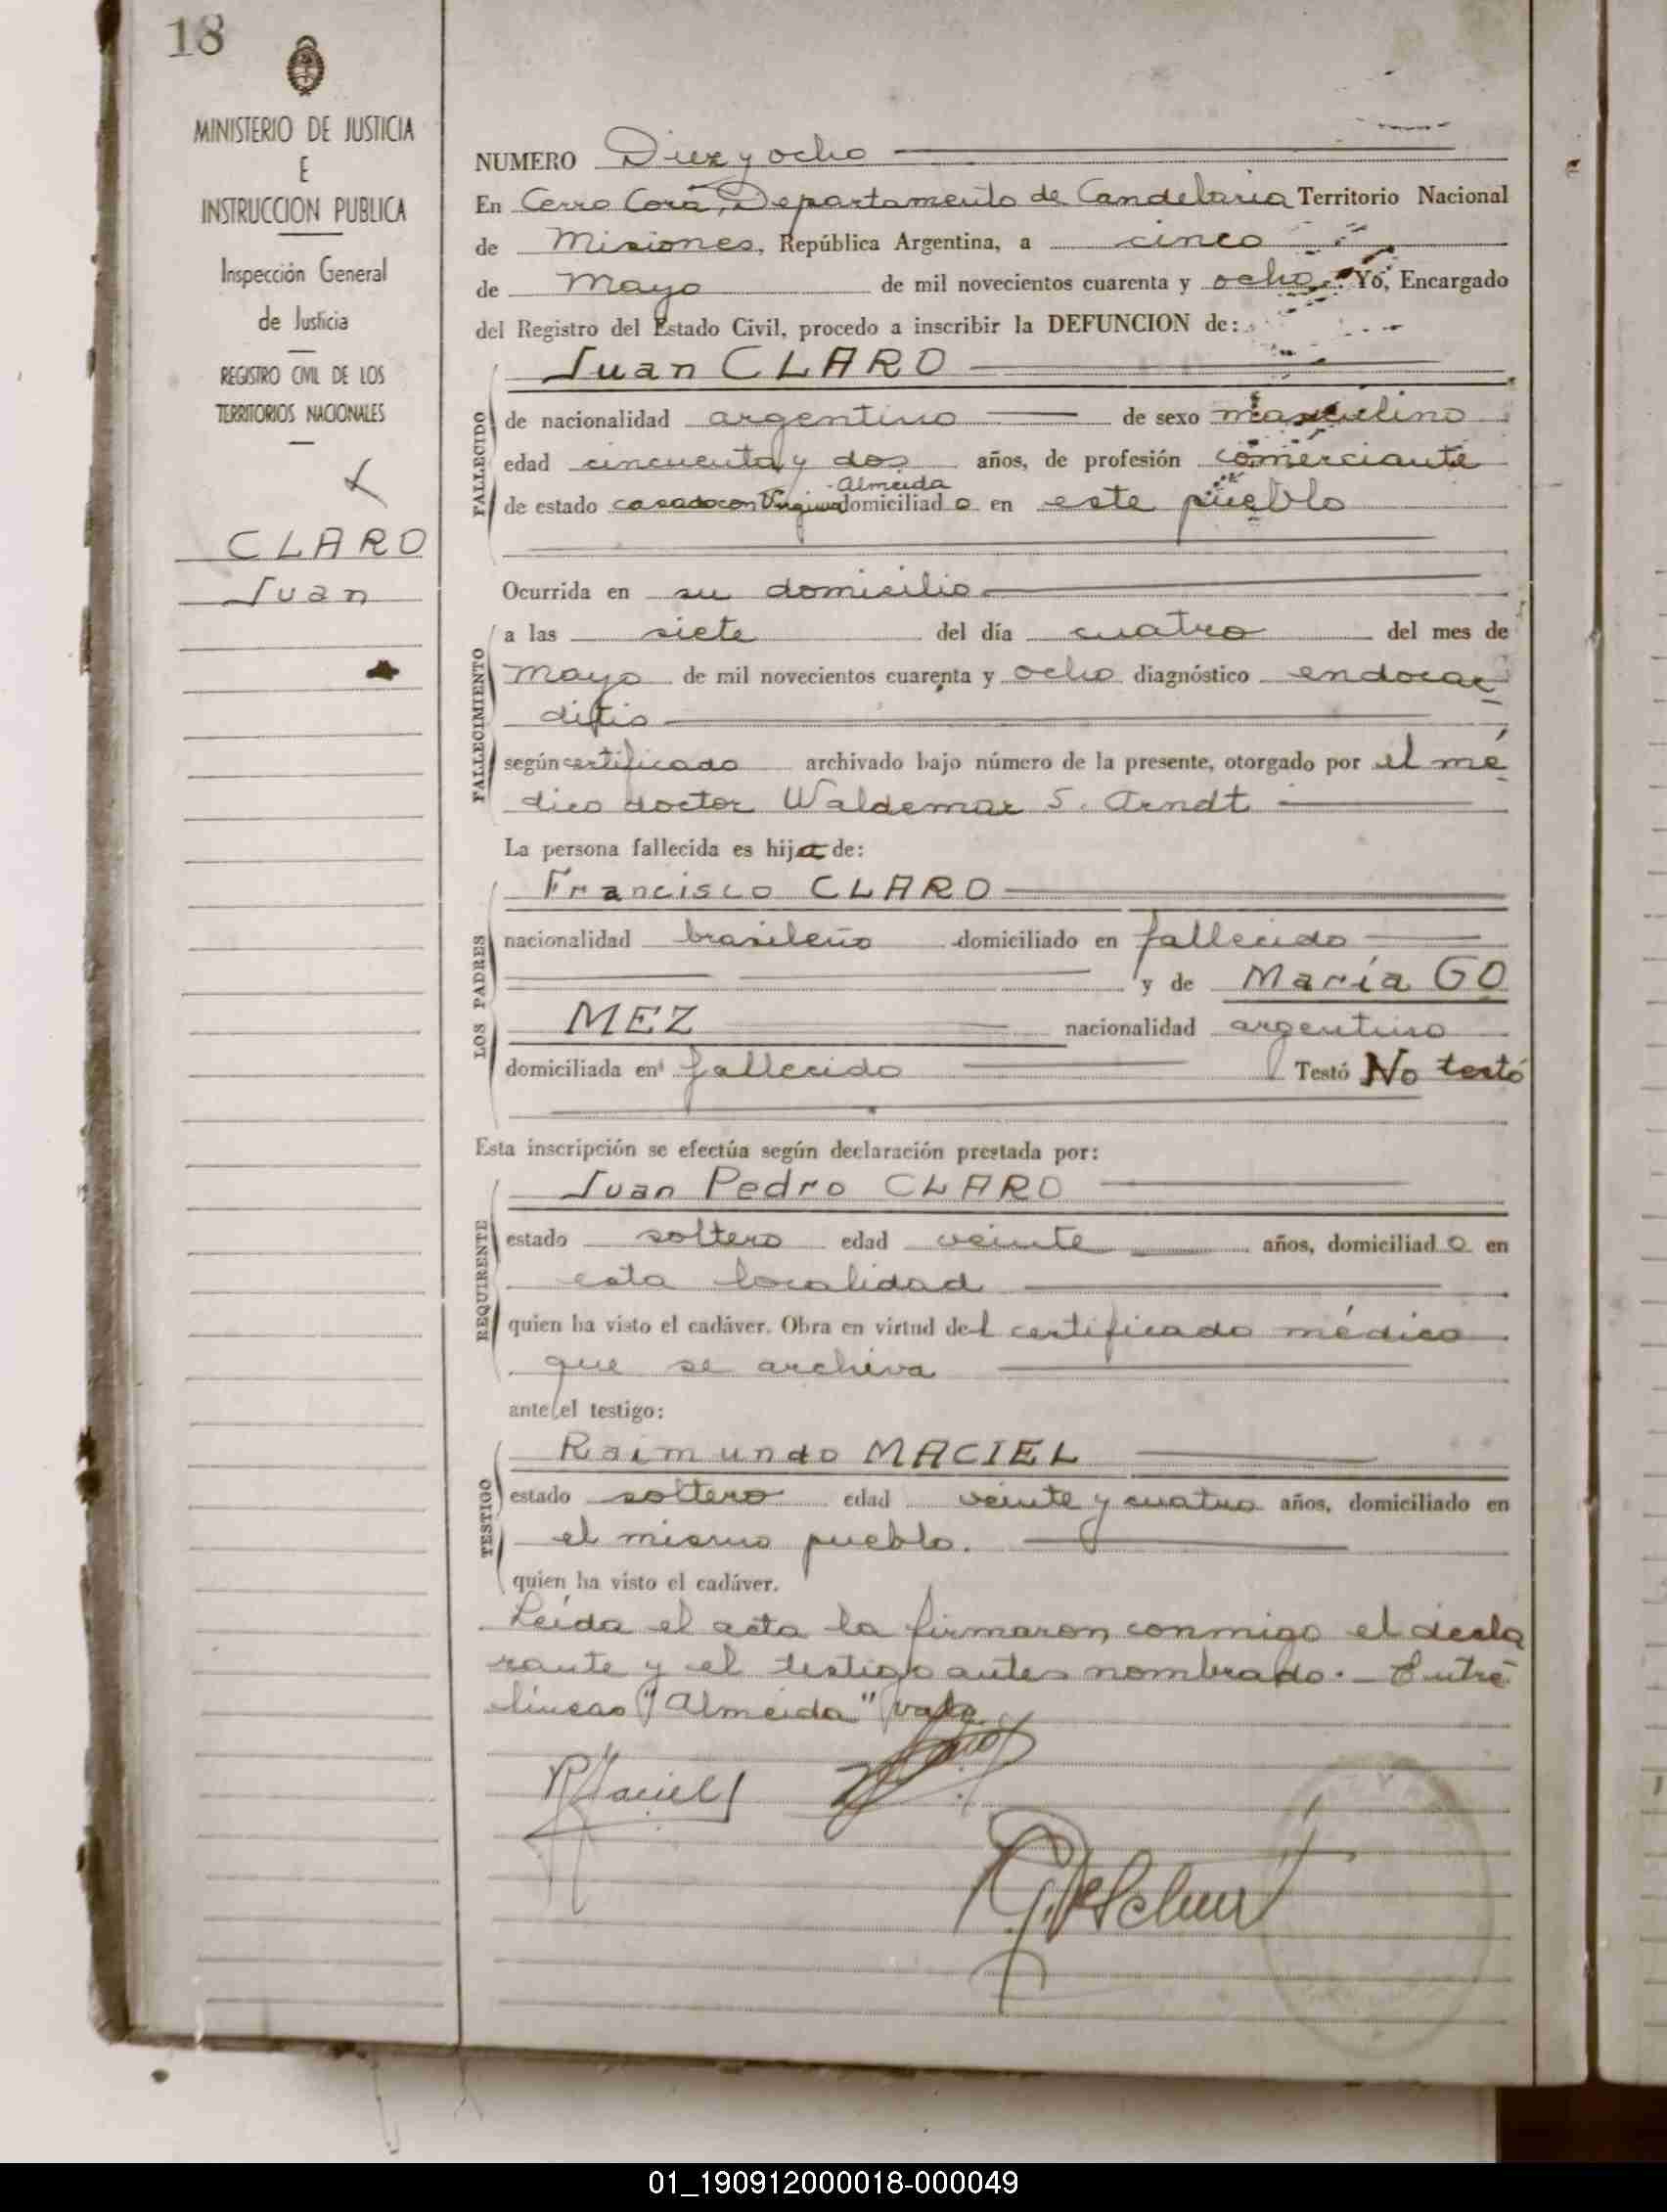 18
MINISTERIO DE JUSTICIA
E
INSTRUCCION PUBLICA
Inspección General
de Justicia
REGISTRO CIVIL DE LOS
TERRITORIOS NACIONALES
CLARO
Juan
NUMERO Diez y ocho
En Cerro Corá, Departamento de Candelaria Territorio Nacional
de Misiones, República Argentina, a cinco
de Mayo de mil novecientos cuarenta y ocho. Yo, Encargado
del Registro del Estado Civil, procedo a inscribir la DEFUNCION de:
Juan CLARO
FALLECIDO
de nacionalidad argentino de sexo masculino
edad cincuenta y dos años, de profesión comerciante
Almeida
de estado casado con Virginia domiciliado en este pueblo
Ocurrida en su domicilio
FALLECIMIENTO
a las siete del día cuatro del mes de
mayo de mil novecientos cuarenta y ocho diagnóstico endocar
ditis
según certificado archivado bajo número de la presente, otorgado por el mé
dico doctor Waldemar S. Arndt
La persona fallecida es hija de:
LOS PADRES
Francisco CLARO
nacionalidad brasileño domiciliado en fallecido
y de María GO
MEZ nacionalidad argentino
domiciliada en fallecido Testó No testó
Esta inscripción se efectúa según declaración prestada por:
REQUIRENTE
Juan Pedro CLARO
estado soltero edad veinte años, domiciliado en
esta localidad
quien ha visto el cadáver. Obra en virtud del certificado médico
que se archiva
ante el testigo:
TESTIGO
Raimundo MACIEL
estado soltero edad veinte y cuatro años, domiciliado en
el mismo pueblo.
quien ha visto el cadáver.
Leída el acta la firmaron conmigo el decla
rante y el testigo antes nombrado. - Entre
líneas "Almeida" vale
RMaciel
01_190912000018-000049